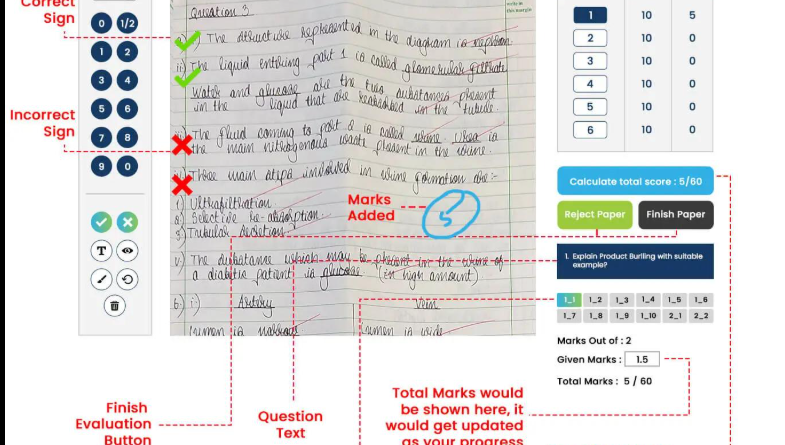 Correct
Sign
0 1/2
1 2
3 4
5 6
7 8
9 0
Incorrect
Sign
T
Question 3
i) The structure represented in the diagram is nephron.
ii) The liquid entering part 1 is called glomerular filtrate
Water and glucose are the two substances present
in the liquid that are reabsorbed in the tubule.
iii) The fluid coming to part 2 is called urine. Urea is
the main nitrogenous waste present in the urine.
iv) Three main steps involved in urine formation are:-
1) Ultrafiltration
2) Selective Re-absorption
3) Tubular Secretion
v) The substance which may be present in the urine of
a diabetic patient is glucose (in high amount)
6) i) Artery Vein
lumen is narrow lumen is wide
Marks
Added
5
1 10 5
2 10 0
3 10 0
4 10 0
5 10 0
6 10 0
Calculate total score : 5/60
Reject Paper Finish Paper
1. Explain Product Burling with suitable
example?
1_1 1_2 1_3 1_4 1_5 1_6
1_7 1_8 1_9 1_10 2_1 2_2
Marks Out of : 2
Given Marks : 1.5
Total Marks : 5 / 60
Finish
Evaluation
Button
Question
Text
Total Marks would
be shown here, it
would get updated
as your progress